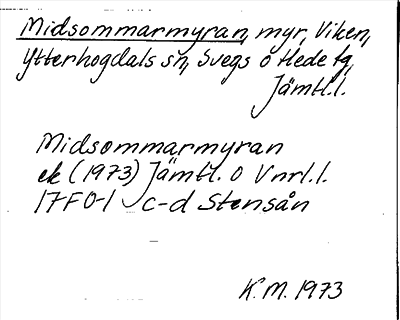 Midsommarmyran, myr, Viken,
Ytterhogdals sn, Svegs o Hede tg,
Jämtl.l.
Midsommarmyran
ek (1973) Jämtl. o Vnrl.l.
17F0-1 c-d Stensån
K.M. 1973